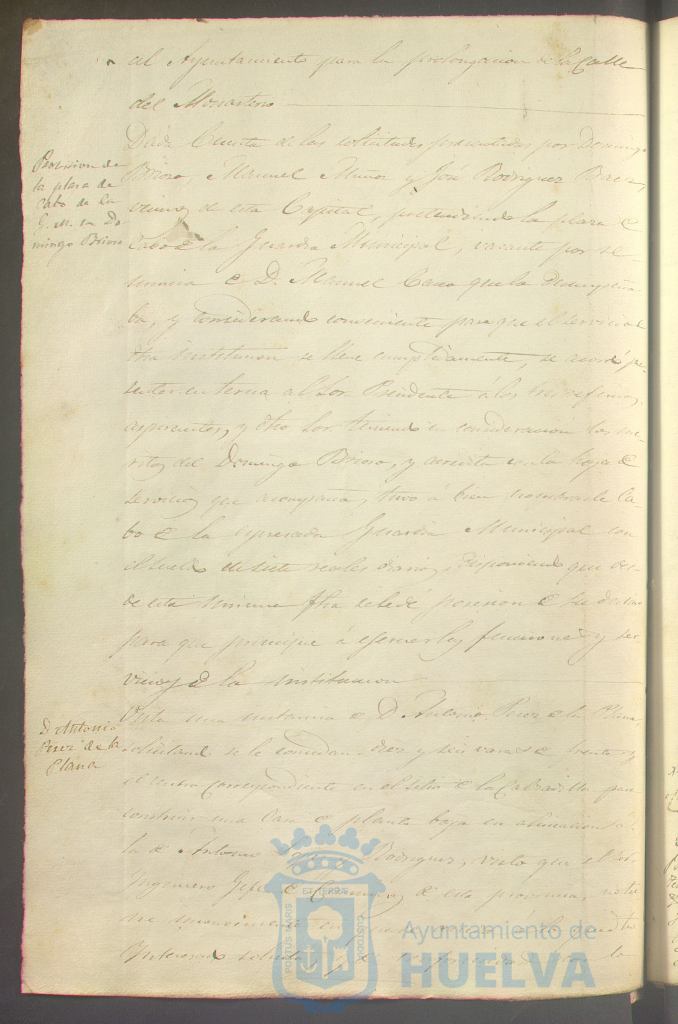 al Ayuntamiento para la prolongacion de la Calle
del Monasterio
Provision de
la plaza de
Cabo de la
G. M. en Do
mingo Brioso
Dada Cuenta de las solicitudes presentadas por Domingo
Brioso, Manuel Muñoz y José Rodriguez Baez,
vecinos de esta Capital, pretendiendo la plaza de
Cabo de la Guardia Municipal, vacante por re-
nuncia de D. Manuel Cano que la desempeña-
ba, y considerando conveniente para que el servicio de
dha institucion se llene cumplidamente, se acordó pre-
sentar en terna al Sor Presidente á los tres referidos
aspirantes, y dho Sor teniendo en consideracion los me-
ritos del Domingo Brioso, y acredita en la hoja de
servicios que acompaña, tuvo á bien nombrarle Ca-
bo de la expresada Guardia Municipal con
el sueldo de siete reales diarios, disponiendo que des-
de esta misma fha se le dé posesion de su destino
para que principie á ejercer las funciones y ser-
vicios de la institucion
D. Antonio
Perez de la
Llana
Vista una instancia de D. Antonio Perez de la Llana
solicitando se le concedan diez y seis varas de frente y
el centro correspondiente en el sitio de la Calzadilla para
construir una Casa de planta baja en alineacion á
la de Antonio Rodriguez, visto que el Sor
Ingeniero Gefe de Caminos de esta provincia
PORTUS MARIS
ET TERRAE
CUSTODIA
Ayuntamiento de
HUELVA